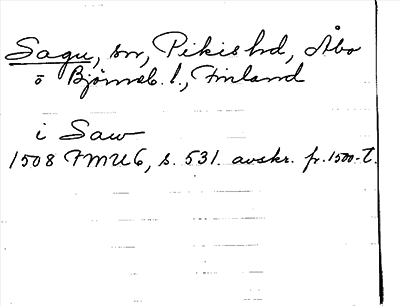 Sagu, sn, Pikis hd, Åbo
o Bjørneb. l., Finland
i Saw
1508 FMU6, s. 531. avskr. fr. 1500-t.